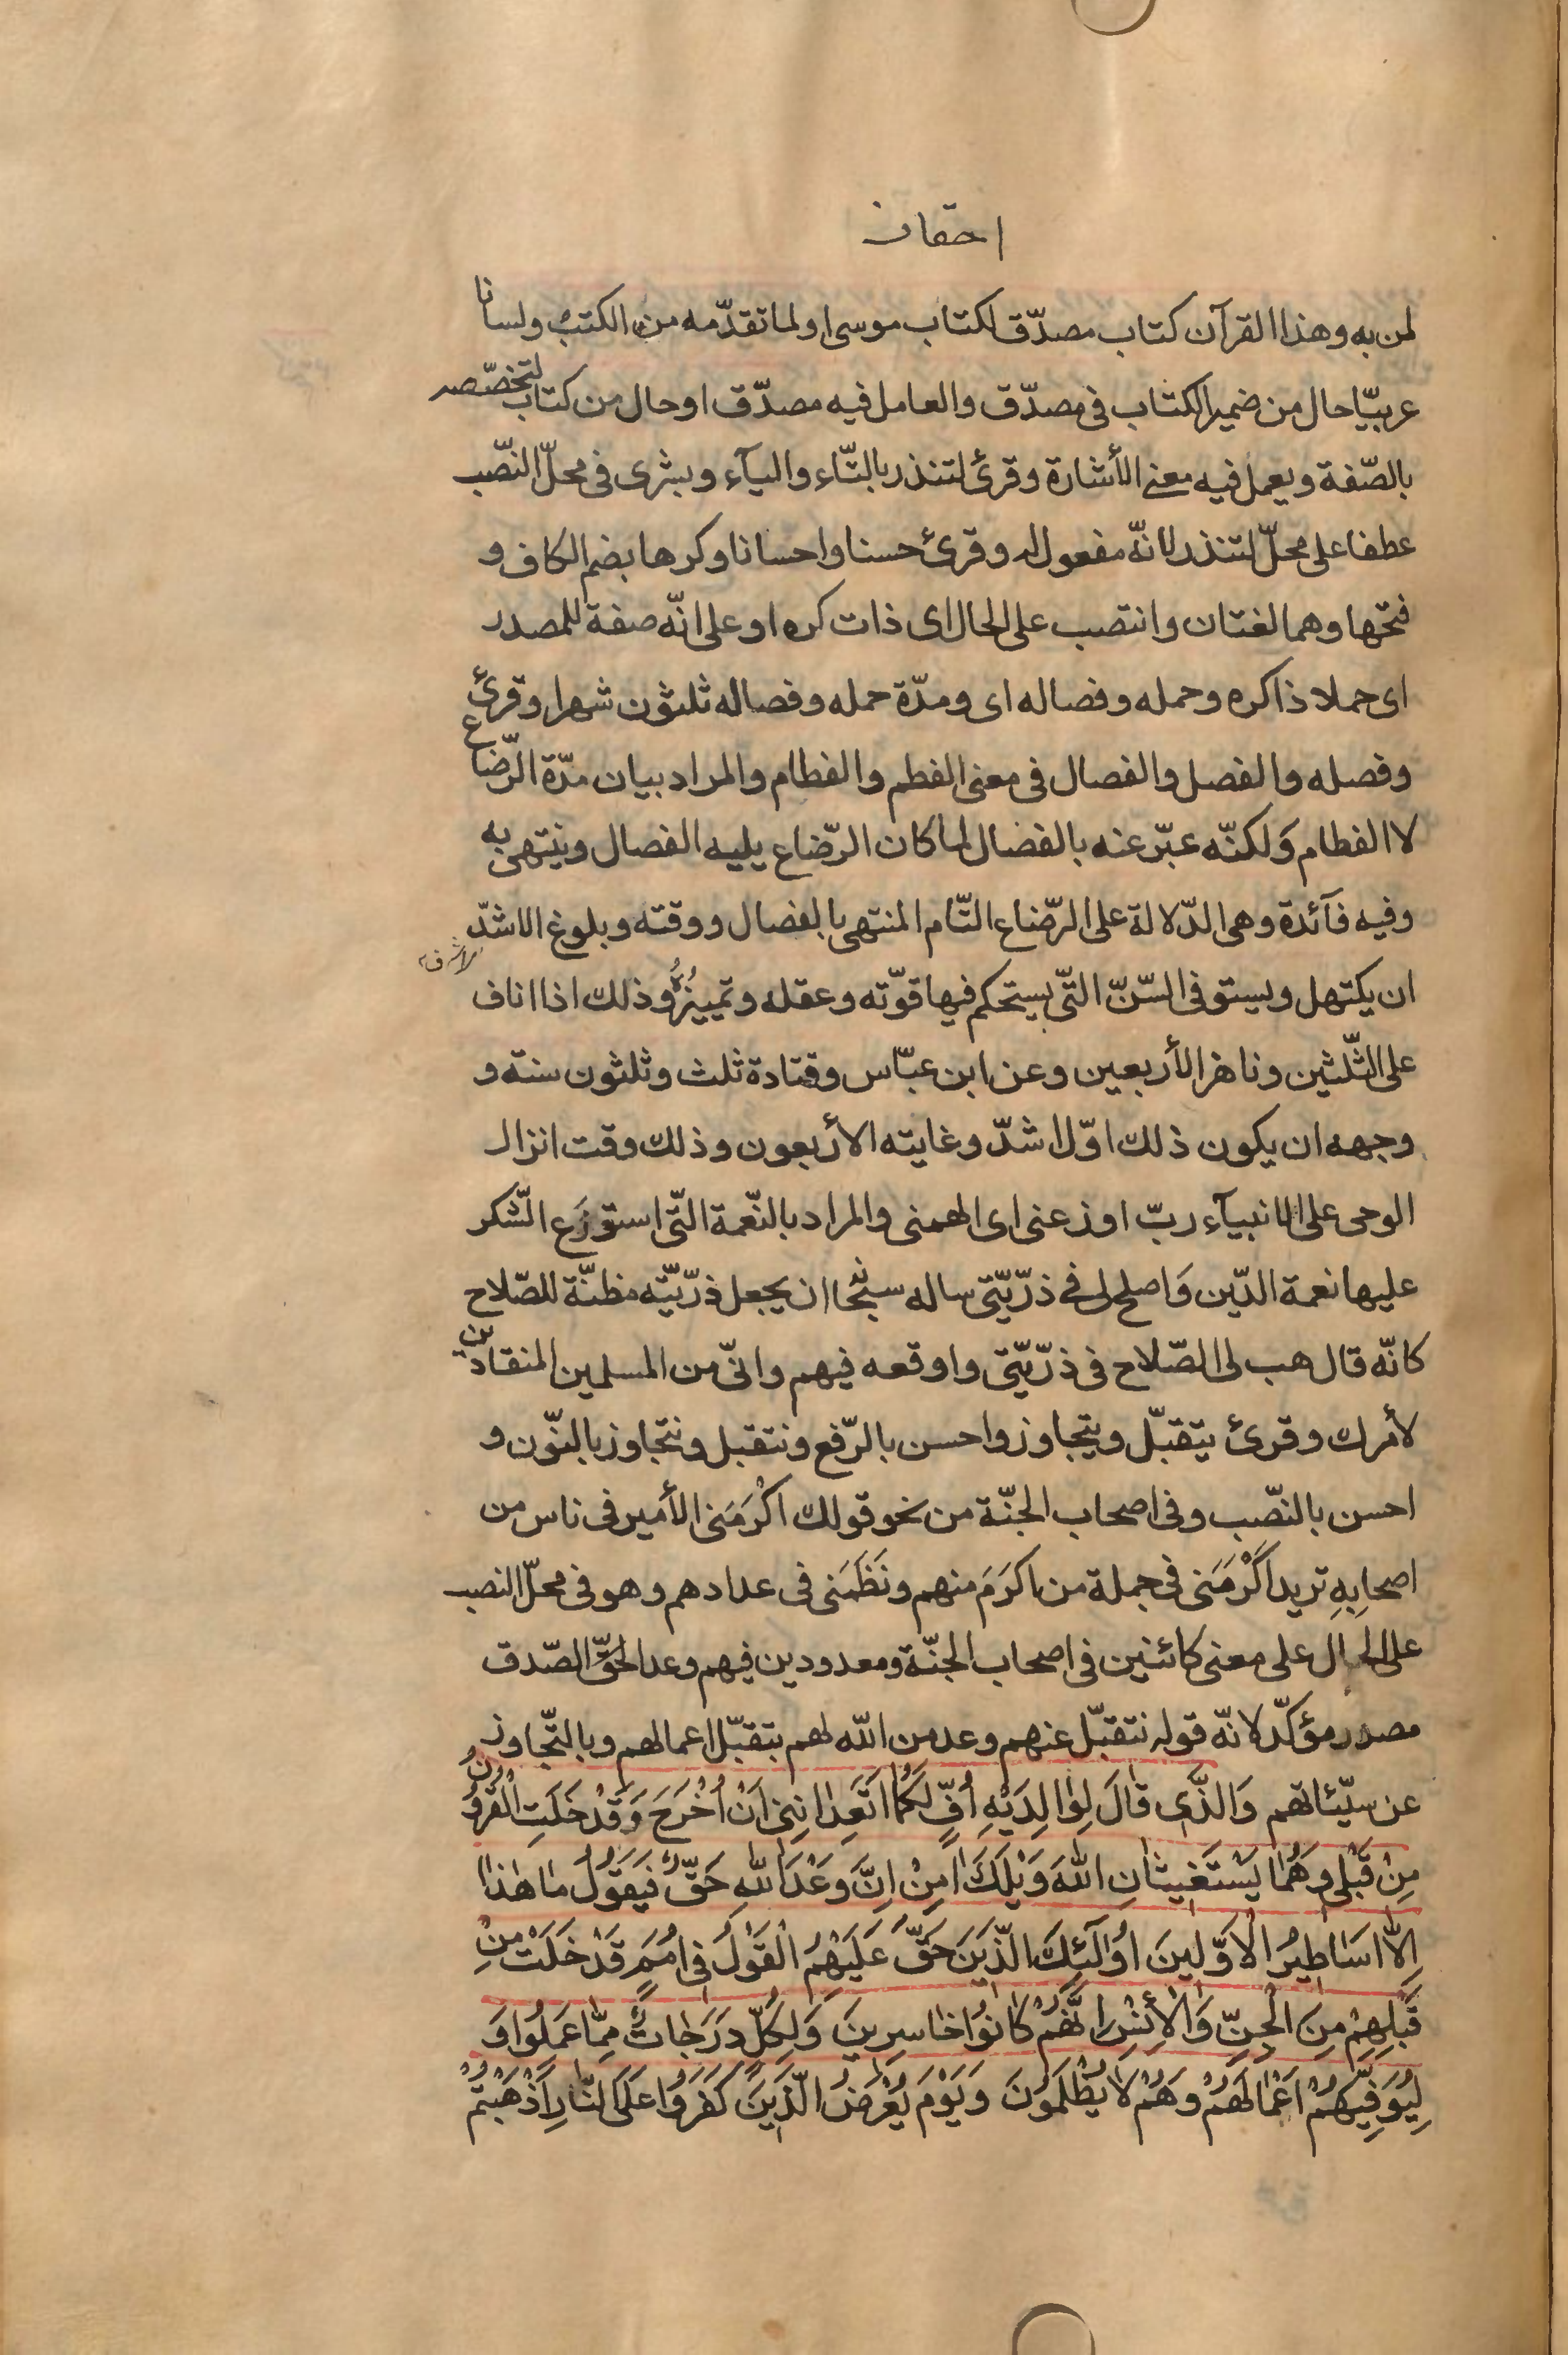 احقاف
لمن به وهذا القرآن كتاب مصدّق لكتاب موسى او لما تقدّمه من الكتب ولسانا
عربيّا حال من ضمير الكتاب فى مصدّق والعامل فيه مصدّق او حال من كتاب لتخصّصه
بالصّفة ويعمل فيه معنى الأشارة وقرئ لتنذر بالتّاء واليآء وبشرى فى محلّ النّصب
عطفا على محلّ لتنذر لانّه مفعول له وقرئ حسنا واحسانا وكرها بضم الكاف و
فتحها وهما لغتان وانتصب على الحال اى ذات كره او على انّه صفة للمصدر
اى حملا ذا كره وحمله وفصاله اى ومدّة حمله وفصاله ثلثون شهرا وقرئ
وفصله والفصل والفصال فى معنى الفطم والفطام والمراد بيان مدّة الرّضاع
لا الفطام وَلكنّه عبّر عنه بالفصال لما كان الرّضاع يليه الفصال وينتهى به
وفيه فآئدة وهى الدّلالة على الرّضاع التّام المنتهى بالفصال ووقته وبلوغ الاشدّ
ان يكتهل ويستوفى السّنّ التّى يستحكم فيها قوّته وعقله وتمييزُهُ وذلك اذا اناف
على الثّلثين وناهز الأربعين وعن ابن عبّاس وقتادة ثلث وثلثون سنة و
وجهه ان يكون ذلك اوّل اشدّ وغايته الأربعون وذلك وقت انزال
الوحى على الانبيآء ربّ اوزعنى اى الهمنى والمراد بالنّعمة التّى استوزَع الشّكر
عليها نعمة الدّين وَاصلح لى فى ذرّيّتى ساله سبحا ان يجعل ذرّيّته مظنّة للصّلاح
كانّه قال هب لى الصّلاح فى ذرّيّتى واوقعه فيهم وانّى من المسلمين المنقادين
لأمرك وقرئ يتقبّل ويتجاوز واحسن بالرّفع ونتقبل ونتجاوز بالنّون و
احسن بالنّصب وفى اصحاب الجنّة من نحو قولك اكْرَمَنى الأمير فى ناس من
اصحابِهِ تريد اكْرَمَنى فى جملة من اكرَمَ منهم ونَظَمَنى فى عدادهم وهو فى محلّ النصب
على الحال على معنى كائنين فى اصحاب الجنّة ومعدودين فيهم وعد الحقّ الصّدق
مصدر مؤكّد لانّه قوله نتقبّل عنهم وعد من الله لهم بتقبّل اعمالهم وبالتّجاوز
عن سيّئاتهم وَالَّذى قالَ لِوالِدَيْهِ اُفٍّ لَكُما اَتَعِدانِنى اَنْ اُخْرَجَ وَقَدْ خَلَتِ الْقُرُونُ
مِنْ قَبْلى وَهُما يَسْتَغيثانِ اللهَ وَيْلَكَ امِنْ اِنَّ وَعْدَ اللهِ حَقٌّ فَيَقُولُ ما هذا
اِلاّ اَساطيرُ الْاَوَّلينَ اُولٰٓئِكَ الَّذينَ حَقَّ عَلَيْهِمُ الْقَوْلُ فى اُمَمٍ قَدْ خَلَتْ مِنْ
قَبْلِهِمْ مِنَ الْجِنِّ وَالْأِنْسِ اِنَّهُمْ كانُوا خاسِرينَ وَلِكُلٍّ دَرَجاتٌ مِمّا عَمِلُوا وَ
لِيُوَفِّيَهُمْ اَعْمالَهُمْ وَهُمْ لا يُظْلَمُونَ وَيَوْمَ يُعْرَضُ الَّذينَ كَفَرُوا عَلَى النّارِ اَذْهَبْتُمْ